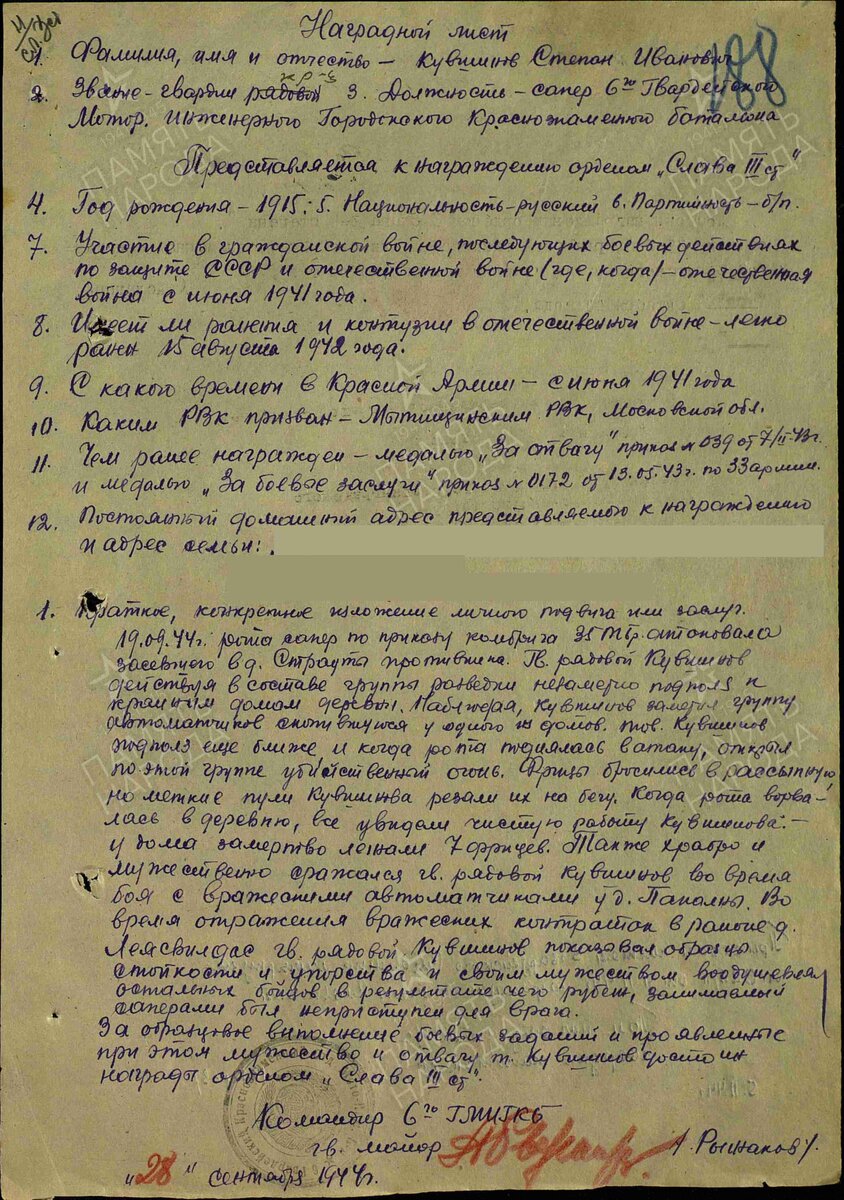 Наградной лист
188
1. Фамилия, имя и отчество – Кувшинов Степан Иванович
2. Звание – гвардии рядовой кр-ц 3. Должность – сапер 6го Гвардейского
Мотор. Инженерного Городокского Краснознаменного баталиона
Представляется к награждению орденом „Слава III ст"
4. Год рождения – 1915; 5. Национальность – русский 6. Партийность – б/п.
7. Участие в гражданской войне, последующих боевых действиях
по защите СССР и отечественной войне (где, когда) – отечественная
война с июня 1941 года.
8. Имеет ли ранения и контузии в отечественной войне – легко
ранен 15 августа 1942 года.
9. С какого времени в Красной Армии – с июня 1941 года
10. Каким РВК призван – Мытищинским РВК, Московской обл.
11. Чем ранее награжден – медалью „За отвагу" приказ № 039 от 7/II-43г.
и медалью „За боевые заслуги" приказ № 0172 от 13.05.43г. по 33 армии.
12. Постоянный домашний адрес представляемого к награждению
и адрес семьи:
1. Краткое, конкретное изложение личного подвига или заслуг.
19.09.44г. рота сапер по приказу комбрига 35 ТБр. атаковала
засевшего в д. Страуты противника. Гв. рядовой Кувшинов
действуя в составе группы разведки незаметно подполз к
крайним домам деревни. Наблюдая, Кувшинов заметил группу
автоматчиков скопившуюся у одного из домов. тов. Кувшинов
подполз еще ближе и когда рота поднялась в атаку, открыл
по этой группе убийственный огонь. Фрицы бросились в рассыпную,
но меткие пули Кувшинова резали их на бегу. Когда рота ворва-
лась в деревню, все увидели чистую работу Кувшинова: –
у дома замертво лежали 7 фрицев. Также храбро и
мужественно сражался гв. рядовой Кувшинов во время
боя с вражескими автоматчиками у д. Папалны. Во
время отражения вражеских контратак в районе д.
Леясвилдас гв. рядовой Кувшинов показывал образцы
стойкости и упорства и своим мужеством воодушевлял
остальных бойцов в результате чего рубеж, занимаемый
саперами был неприступен для врага.
За образцовое выполнение боевых заданий и проявленные
при этом мужество и отвагу т. Кувшинов достоин
награды орденом „Слава III ст".
Командир 6го ГМИГКБ
гв. майор / А. Рыжаков /.
„28" сентября 1944г.